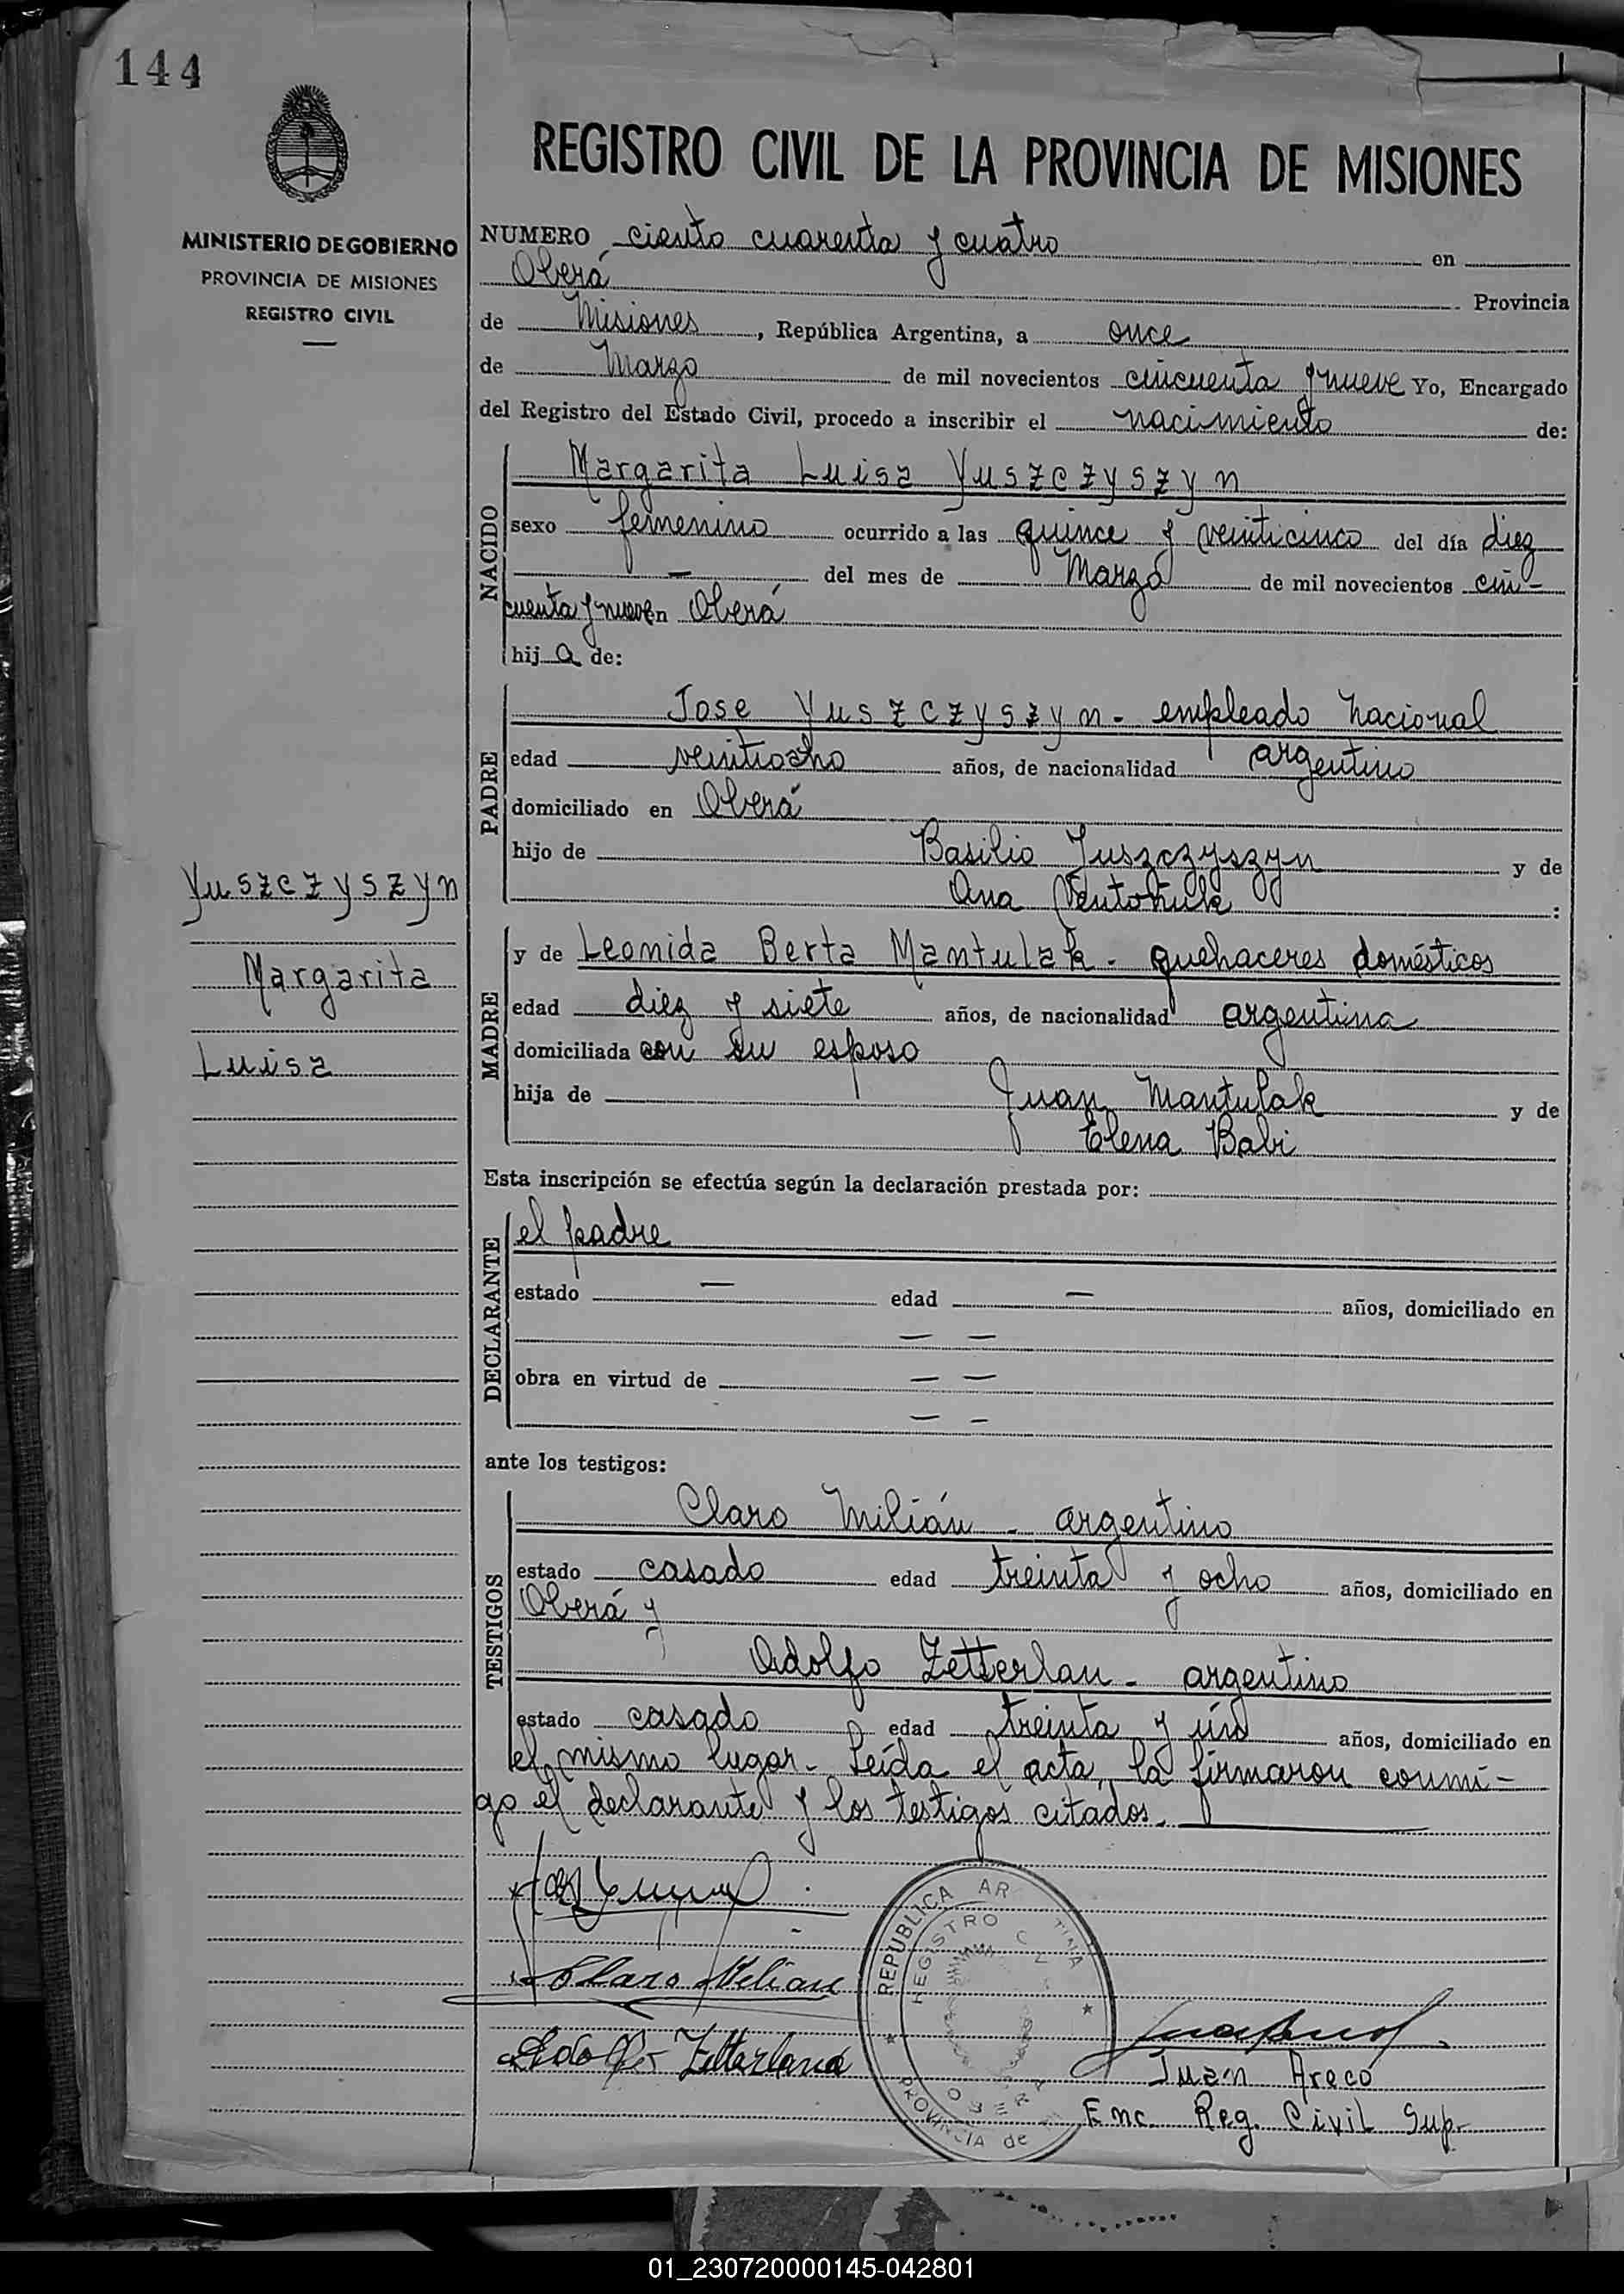 144
MINISTERIO DE GOBIERNO
PROVINCIA DE MISIONES
REGISTRO CIVIL
Yuszczyszyn
Margarita
Luisa
REGISTRO CIVIL DE LA PROVINCIA DE MISIONES
NUMERO ciento cuarenta y cuatro en
Oberá Provincia
de Misiones, República Argentina, a once
de Marzo de mil novecientos cincuenta y nueve Yo, Encargado
del Registro del Estado Civil, procedo a inscribir el nacimiento de:
NACIDO
Margarita Luisa Yuszczyszyn
sexo femenino ocurrido a las quince y veinticinco del día diez
— del mes de Marzo de mil novecientos cin-
cuenta y nueve en Oberá
hija de:
PADRE
Jose Yuszczyszyn - empleado nacional
edad veintiocho años, de nacionalidad argentino
domiciliado en Oberá
hijo de Basilio Juszczyszyn y de
Ana :
MADRE
y de Leonida Berta Mantulak - quehaceres domésticos
edad diez y siete años, de nacionalidad argentina
domiciliada con su esposo
hija de Juan Mantulak y de
Elena Babi
Esta inscripción se efectúa según la declaración prestada por:
DECLARANTE
el padre
estado — edad — años, domiciliado en
— —
obra en virtud de — —
— —
ante los testigos:
TESTIGOS
Claro Milián - argentino
estado casado edad treinta y ocho años, domiciliado en
Oberá y
Adolfo Zetterlan - argentino
estado casado edad treinta y uno años, domiciliado en
el mismo lugar - Leída el acta, la firmaron conmi-
go el declarante y los testigos citados.
Claro Milian
Adolfo Zetterland
REPUBLICA AR TINA
REGISTRO CIVIL
OBERA
PROVINCIA de
Juan Areco
Enc. Reg. Civil Sup.
01_230720000145-042801